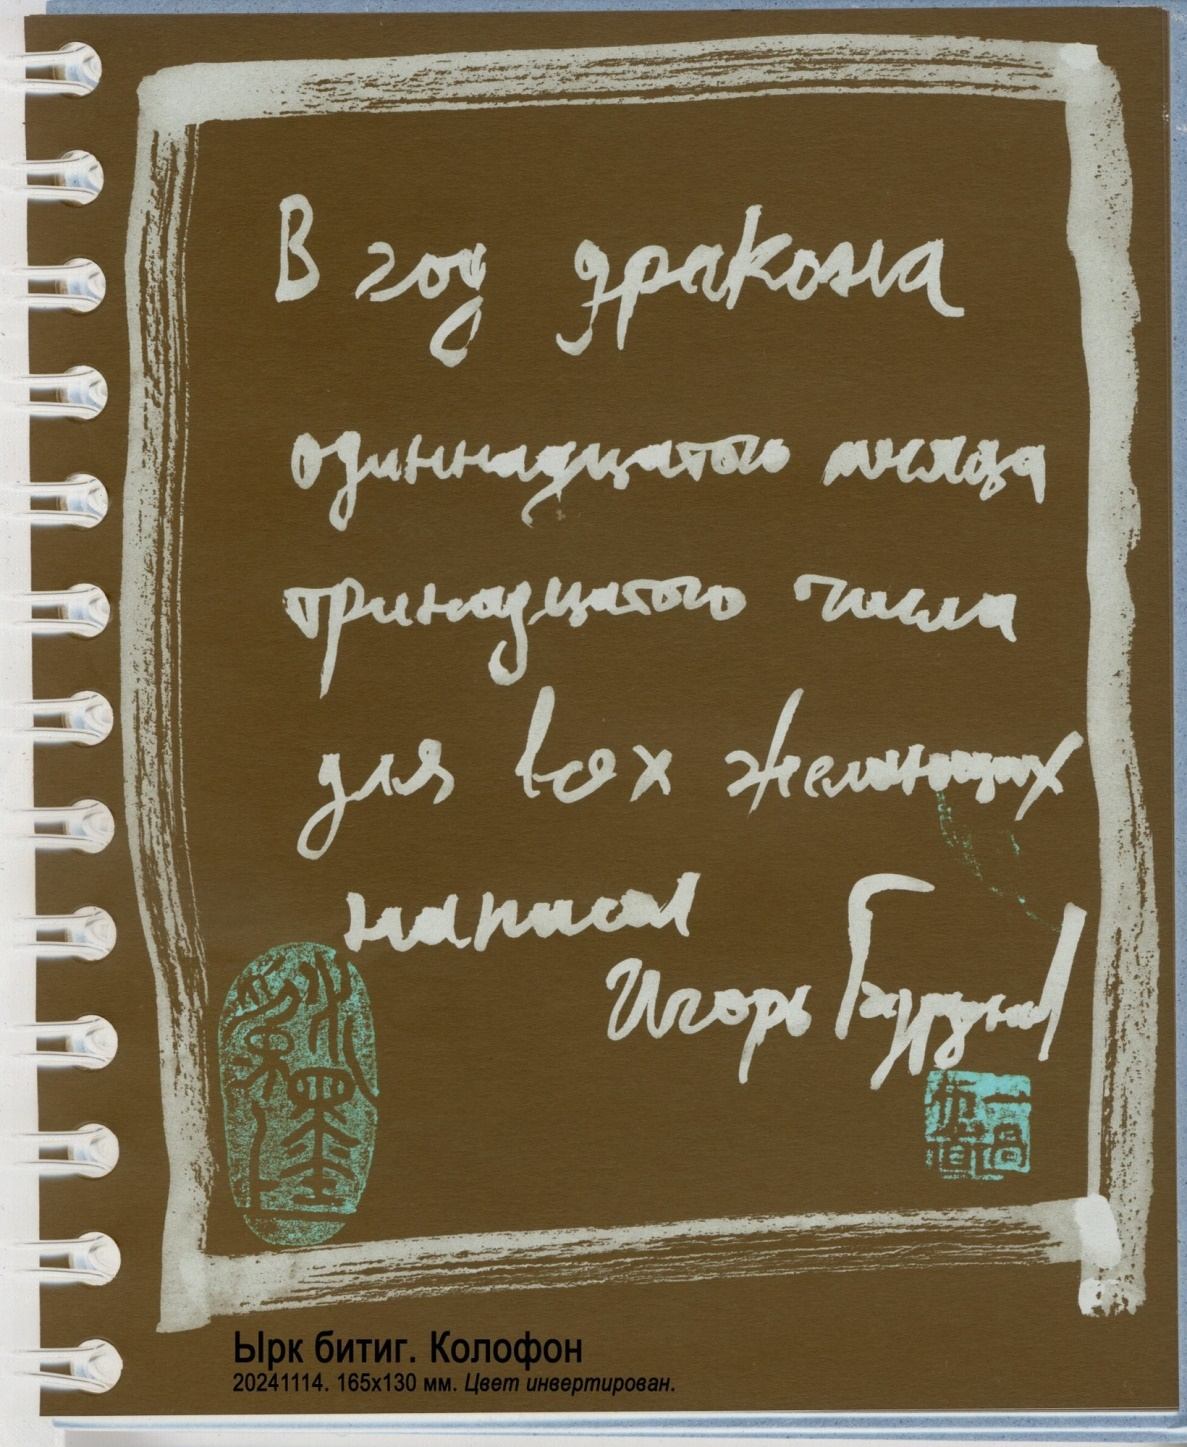 В год дракона
одиннадцатого месяца
тринадцатого числа
для всех желающих
написал
Игорь Бурдонов
Ырк битиг. Колофон
20241114. 165x130 мм. Цвет инвертирован.